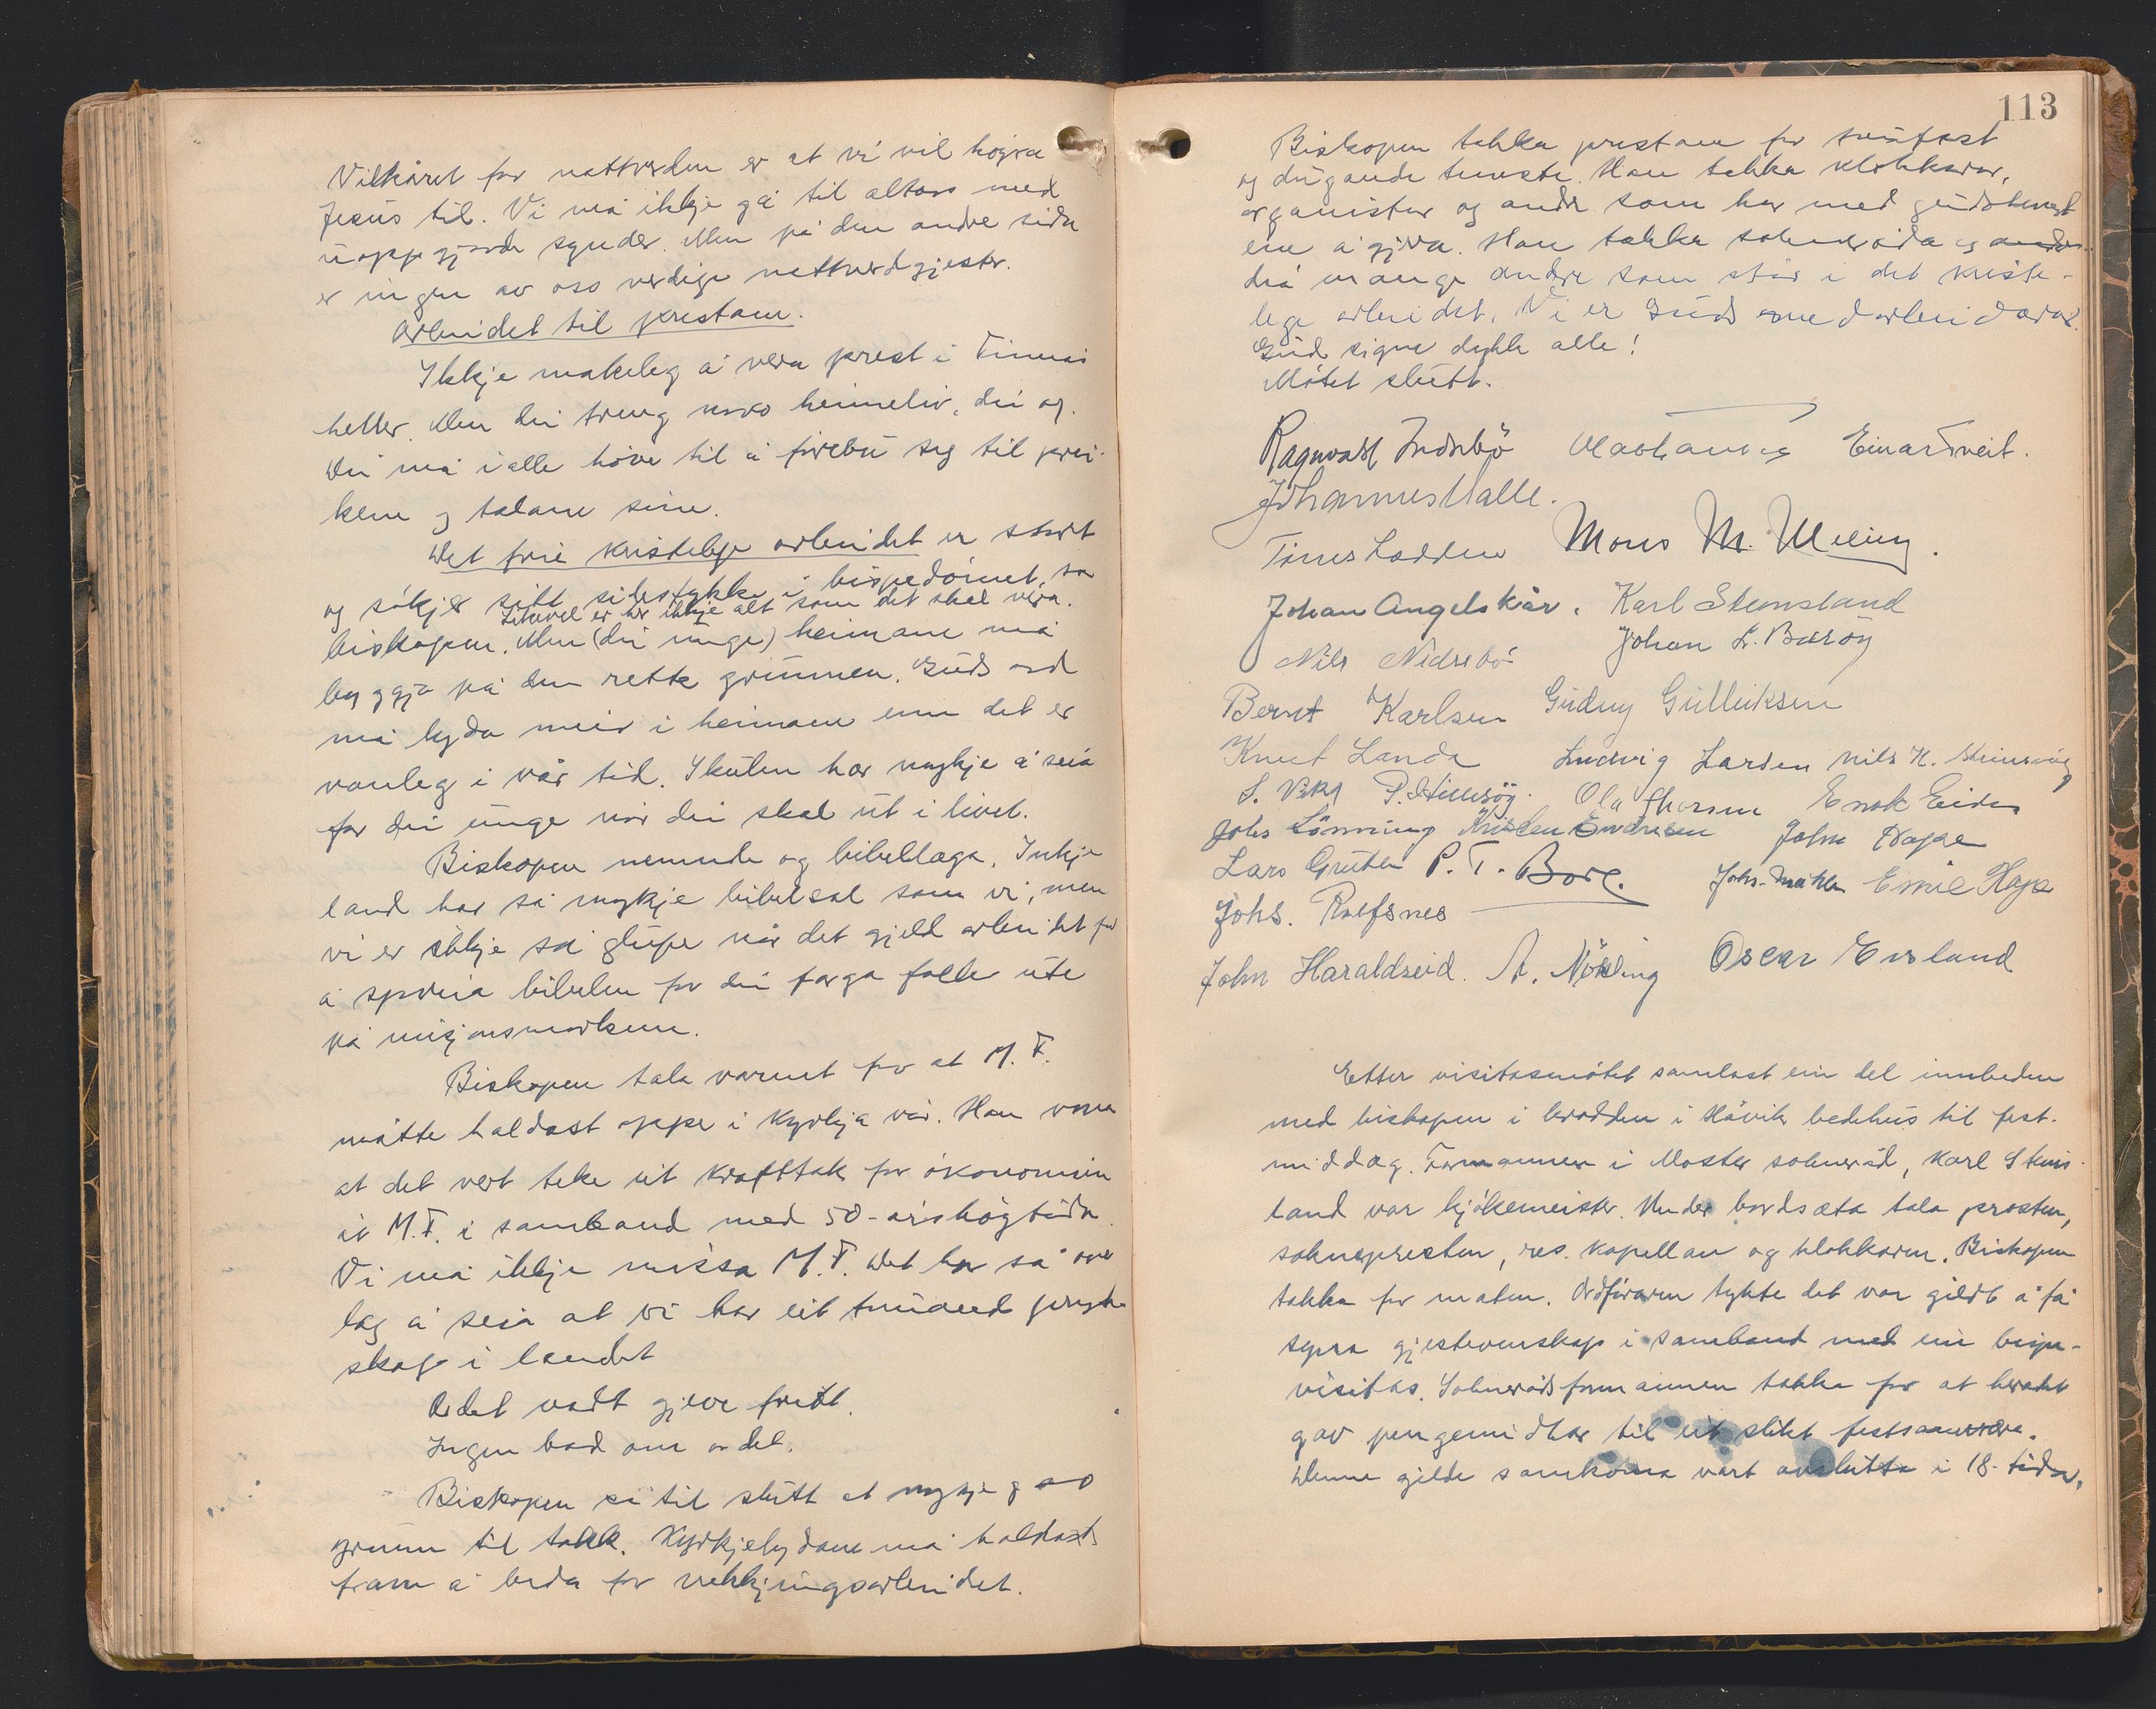 Vilkåret for nattverden er at vi vil høyra
Jesus til. Vi må ikkje gå til altars med
uoppgjorde synder. Men på den andre sida
er ingen av oss verdige nattverdgjester.
Arbeidet til prestane.
Ikkje makeleg å vera prest i Finnås
heller. Men dei treng noko heimeliv, dei og.
Dei må i alle høve til å firebu seg til prei-
kene og talane sine.
Det frie kristelege arbeidet er stort
og søkjer sitt sidestykke i bispedømet, sa
Likevel er her ikkje alt som det skal vera.
biskopen. Men (dei unge) heimane må
byggja på den rette grunnen. Guds ord
må lyda meir i heimane enn det er
vanleg i vår tid. Skulen har mykje å seia
for dei unge når dei skal ut i livet.
Biskopen nemnde og bibellaga. Inkje
land har så mykje bibelsal som vi, men
vi er ikkje så glupe når det gjeld arbeidet for
å spreia bibelen for dei farga folk ute
på misjonsmarkene.
Biskopen tala varmt for at M.F.
måtte haldast oppe i kyrkja vår. Han vona
at det vert teke eit krafttak for økonomien
åt M.F. i samband med 50-årshøgtida.
Vi må ikkje missa M.F. Det har så
lag å seia at vi har eit truande preste-
skap i landet
Ordet vart gjeve fritt.
Ingen bad om ordet.
Biskopen sa til slutt at mykje gav
grunn til takk. Kyrkjelydane må haldast
fram å beda for vekkjingsarbeidet.
113
Biskopen takka prestane for trufast
og dugande teneste. Han takka klokkarar,
organistar og andre som har med gudstenest
ene å gjera. Han takka sokneråda og andre
dei mange andre som står i det kriste-
lege arbeidet. Vi er Guds medarbeidarar.
Gud signe dykk alle!
Møtet slutt.
Ragnvald Indrebø Einar Tveit.
Johannes Valle.
Tines Lodden Mons M.
Johan Angelskår. Karl Stensland
Nils Nedrebø Johan L. Barøy
Bernt Karlsen Gudny Gulleiksen
Knut Landa Ludvig Larsen Nils H. Steinsvåg
S. Vika P. Ola Thorsen Enok Eide
Johs Lønning Kristen Endresen John Hope
Lars Gruten P. T. Emil Hope
Johs. Roefsnes
John Haraldseid. A. Nøkling Oscar Evsland
Etter visitasmøtet samlast ein del innbedne
med biskopen i brodden i Håvik bedehus til fest-
middag. Formannen i Moster sokneråd, Karl Stens-
land var kjøkemeister. Under bordseta tala prosten,
soknepresten, res. kapellan og klokkaren. Biskopen
takka for maten. Ordføraren tykte det var gildt å få
syna gjestevenskap i samband med ein bispe-
visitas. Soknerådsformannen takka for at heradet
gav pengemidlar til eit slikt festsamvære.
Denne gilde samkoma vart avslutta i 18-tida.